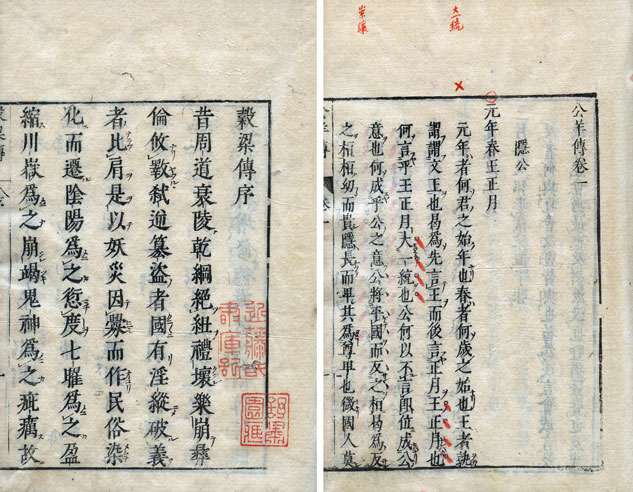 大一統
公羊傳卷一
隱公
元年春王正月
元年者何君之始年也春者何歲之始也王者孰
謂謂文王也曷爲先言王而後言正月王正月也
何言乎王正月大一統也公何以不言卽位成公
意也何成乎公之意公將平國而反之桓曷爲反
之桓桓幼而貴隱長而卑其爲尊卑也微國人莫
穀梁傳序
昔周道衰陵乾綱絶紐禮壞樂崩彝
倫攸斁弑逆簒盜者國有淫縱破義
者比肩是以妖災因釁而作民俗染
化而遷陰陽爲之愆度七耀爲之盈
縮川嶽爲之崩竭鬼神爲之疵癘故